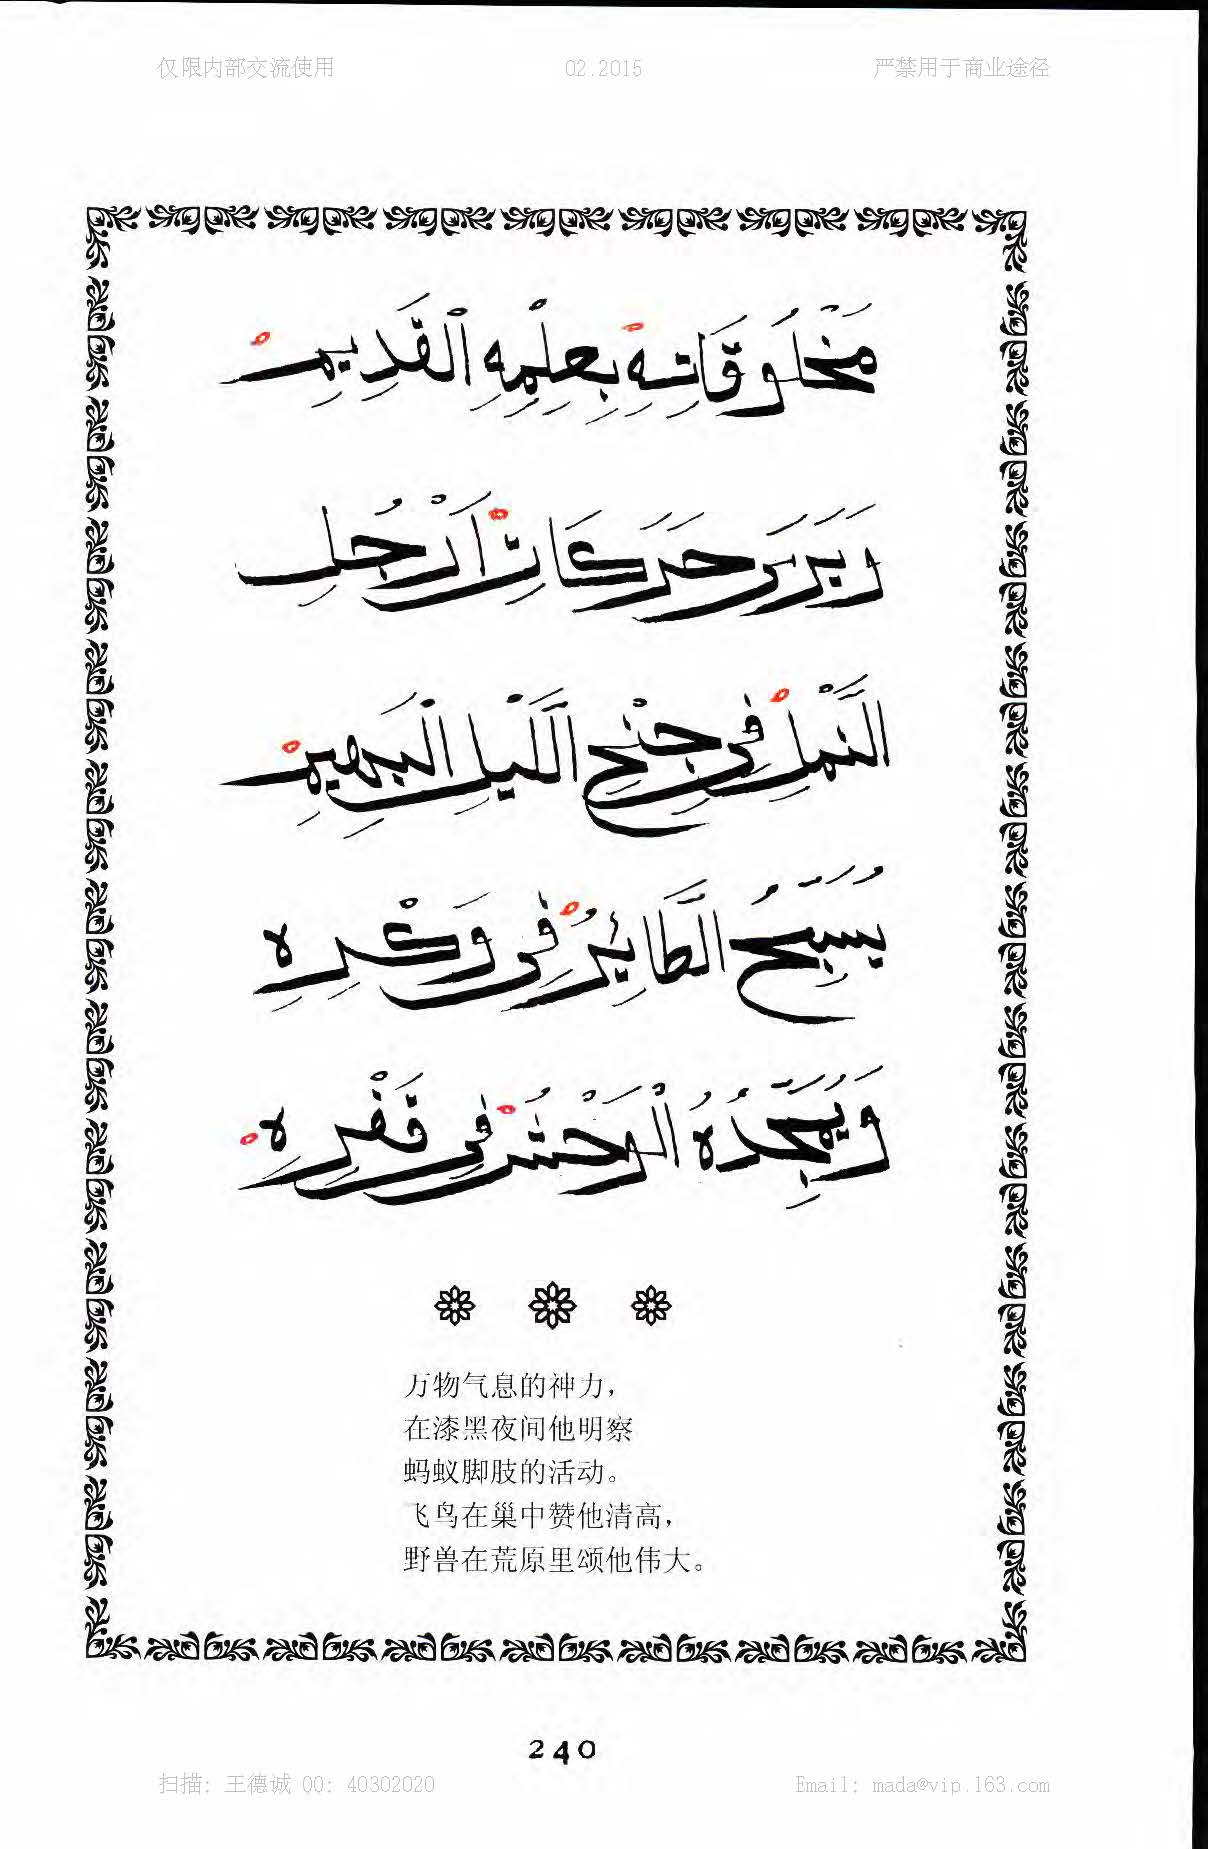 仅限内部交流使用 02.2015 严禁用于商业途径
مَخْلُوقَاتِهِ بِعِلْمِهِ الْقَدِيمِ
وَيَرَى حَرَكَاتِ أَرْجُلِ
النَّمْلِ فِي جِنْحِ اللَّيْلِ الْبَهِيمِ
يُسَبِّحُ الطَّائِرُ فِي وَكْرِهِ
وَيُمَجِّدُهُ الْوَحْشُ فِي قَفْرِهِ
万物气息的神力，
在漆黑夜间他明察
蚂蚁脚肢的活动。
飞鸟在巢中赞他清高，
野兽在荒原里颂他伟大。
240
扫描: 王德诚 QQ: 40302020 Email: mada@vip.163.com